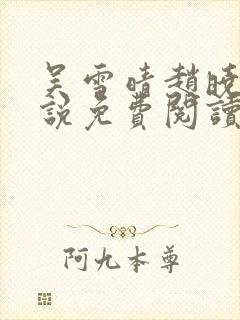 吴雪晴趙曉
說免費閱讀
阿九本尊